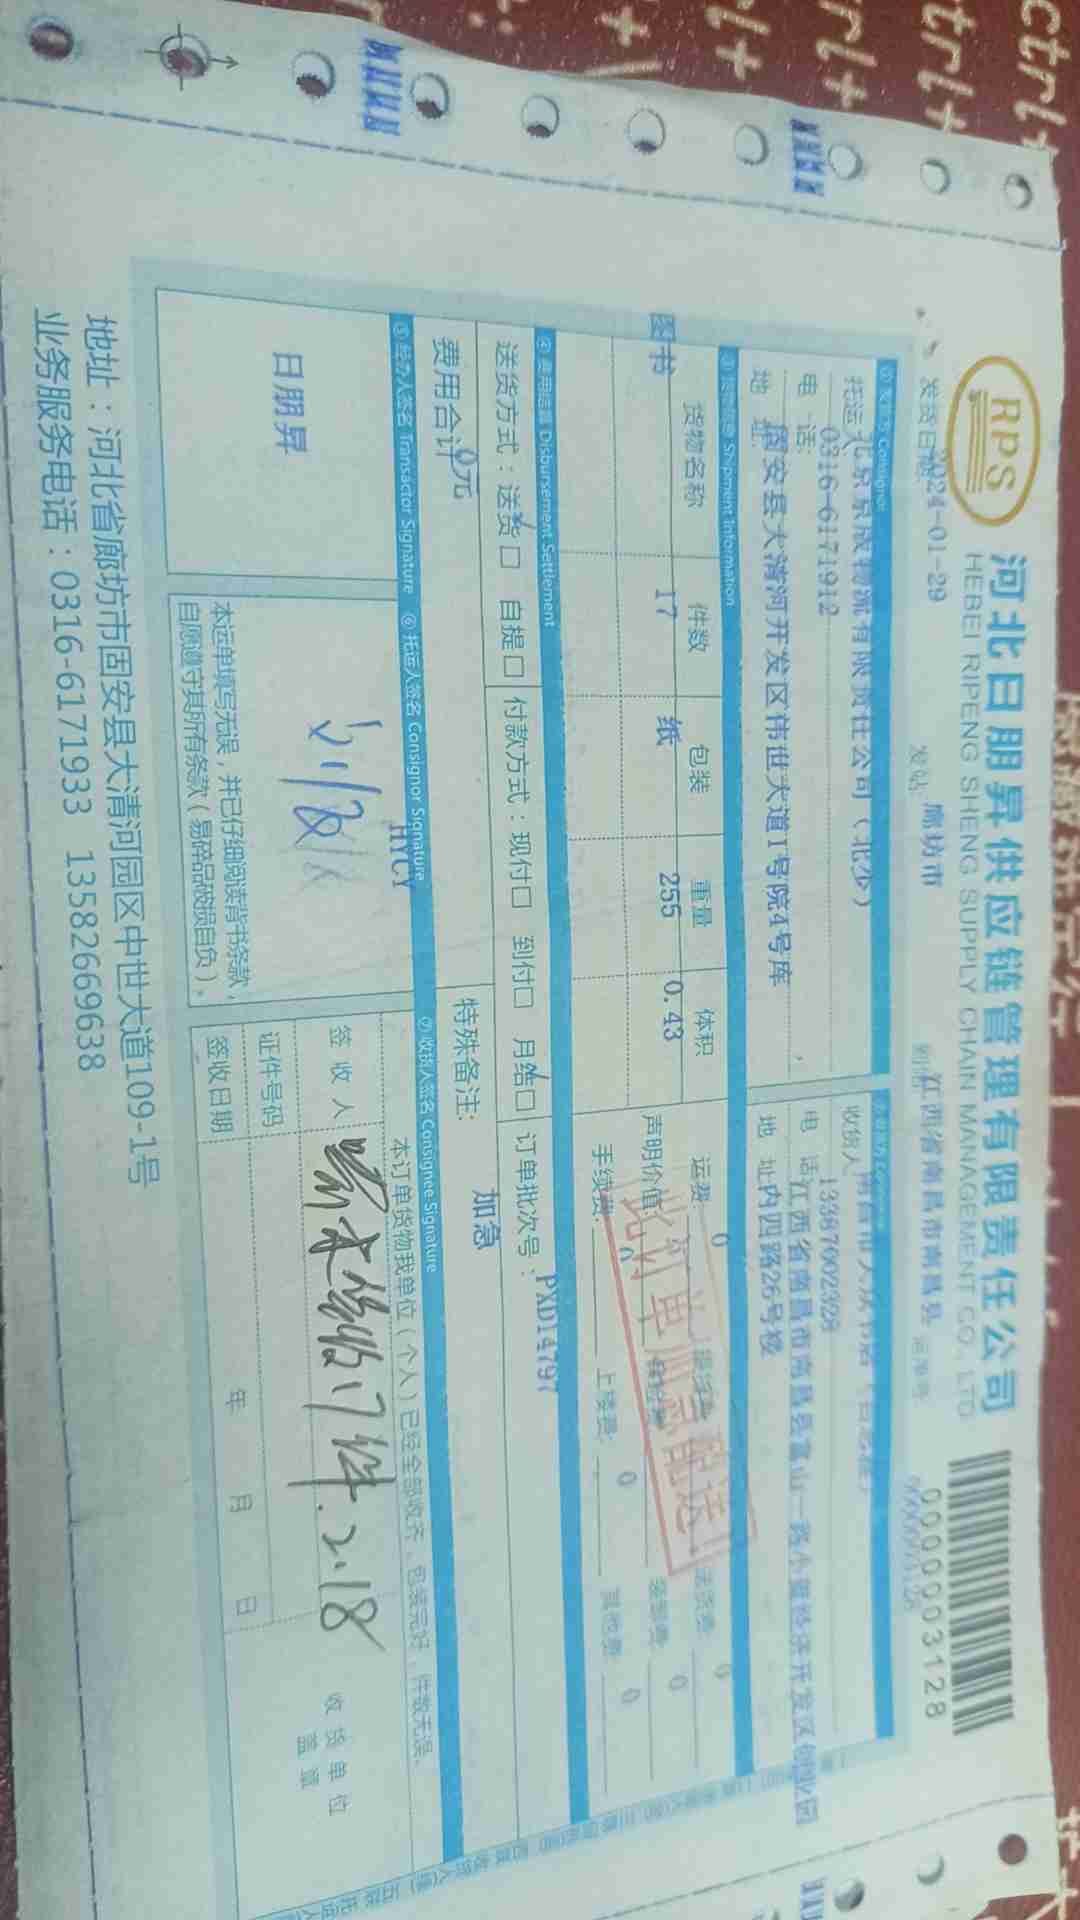 RPS
河北日朋昇供应链管理有限责任公司
HEBEI RIPENG SHENG SUPPLY CHAIN MANAGEMENT CO., LTD
0000003128
发货日期
2024-01-29
发站
廊坊市
江西省南昌市南昌县
Consignor
托运人
北京京版物流有限责任公司（北少）
电 话:
0316-6171912
地 址:
固安县大清河开发区伟世大道1号院4号库
收货人
电 话
13387002328
地 址
江西省南昌市南昌县富山一路小蓝经济开发区创业园
内四路26号楼
Shipment Information
货物名称 件数 包装 重量 体积
图书 17 纸 255 0.43
运费: 0
送货费: 0
声明价值:
0
手续费: 0
上楼费: 0
其他费: 0
此订单顺雪配送
④费用结算 Disbursement Settlement
送货方式：送货☑ 自提□
付款方式：现付□ 到付□ 月结☑
订单批次号：
PXD14797
费用合计
0元
特殊备注:
加急
⑤经办人签名 Transactor Signature
⑥托运人签名 Consignor Signature
⑦收货人签名 Consignee Signature
日朋昇
HYCY
本运单填写无误，并已仔细阅读背书条款，
自愿遵守其所有条款(易碎品破损自负)。
本订单货物我单位(个人)已经全部收齐，包装完好，件数无误。
签 收 人
17件. 2.18
证件号码
签收日期
年 月 日
收 货 单 位
盖 章
地址：河北省廊坊市固安县大清河园区中世大道109-1号
业务服务电话：0316-6171933 13582669638